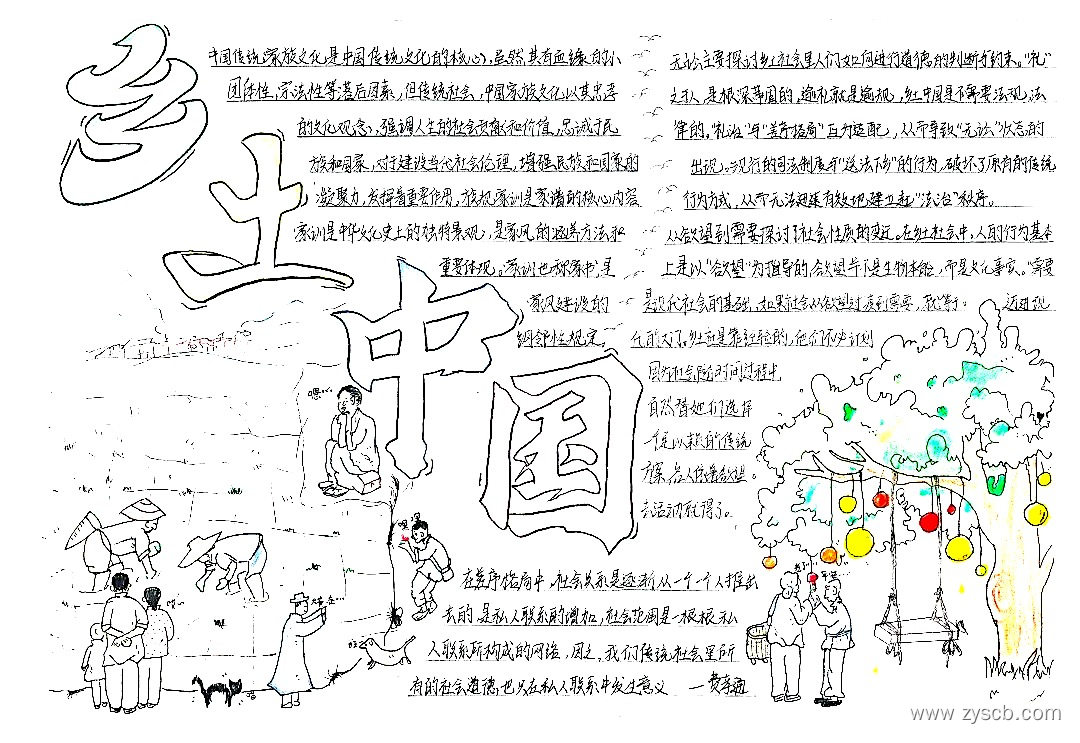 乡土中国
中国传统家族文化是中国传统文化的核心,虽然具有血缘的小
团体性,宗法性等落后因素,但传统社会,中国家族文化以其忠孝
的文化观念,强调人生的社会贡献和价值,忠诚于民
族和国家,对于建设当代社会伦理,增强民族和国家的
凝聚力,发挥着重要作用,族规家训是家谱的核心内容
家训是中华文化史上的独特景观,是家风的涵养方法和
重要体现。家训也称家书,是
家风建设的
纲领性规定。
无讼主要探讨乡土社会里人们如何进行道德的判断与约束。"礼"
之于人,是根深蒂固的,逾礼就是逾规,乡土中国是不需要法规,法
律的。"礼治"与"差序格局"互为适配,从而导致"无讼"状态的
出现。现行的司法制度于"送法下乡"的行为,破坏了原有的传统
行为方式,从而无法迅速有效地建立起"法治"秩序。
从欲望到需要探讨了社会性质的变迁。在乡土社会中,人的行为基本
上是以"欲望"为指导的,欲望并不是生物本能,而是文化事实。"需要
是现代社会的基础,如果社会从欲望过渡到需要,就等于:迈进现
代的大门。乡土社会是靠经验的,他们不必计划
因为社会随时间过程中
自然替他们选择
一个足以依赖的传统
方案,各人依着欲望
去活动就得了。
在差序格局中,社会关系是逐渐从一个一个人推出
去的,是私人联系的增加,社会范围是一根根私
人联系所构成的网络,因之,我们传统社会里所
有的社会道德也只在私人联系中发生意义 —费孝通
www.zyscb.com